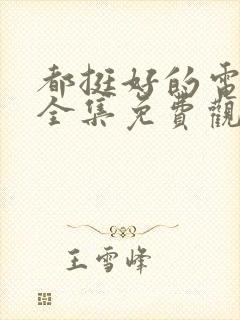 都挺好的電
全集免費觀
王雪峰